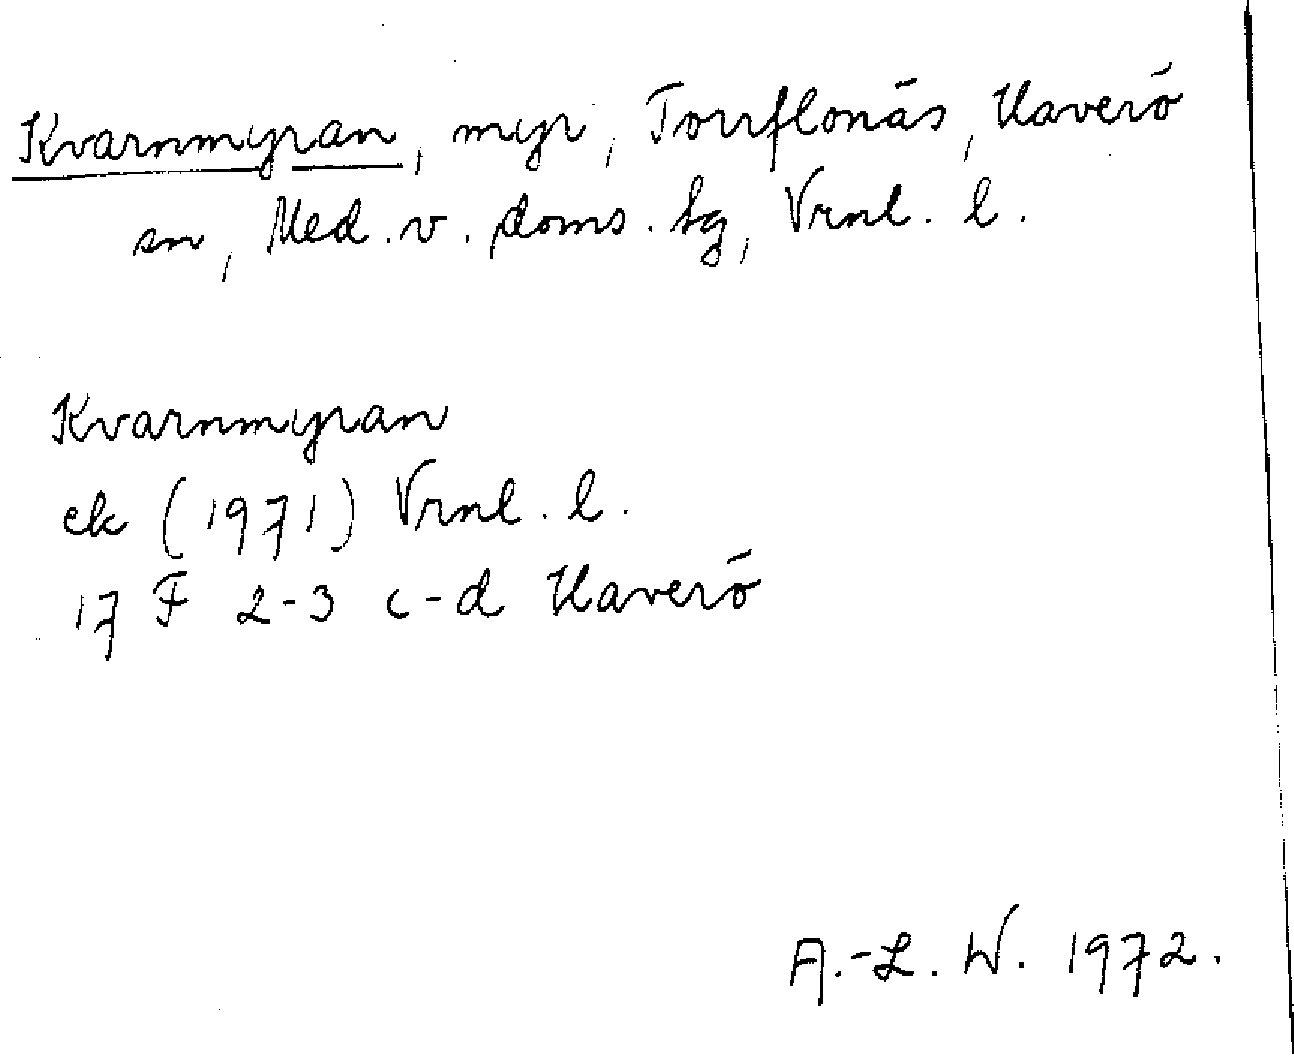 Kvarnmyran, myr, Torrflonäs, Haverö
sn, Med. v. doms. tg, Vrnl. l.
Kvarnmyran
ek (1971) Vrnl. l.
17 F 2-3 c-d Haverö
A.-L. W. 1972.